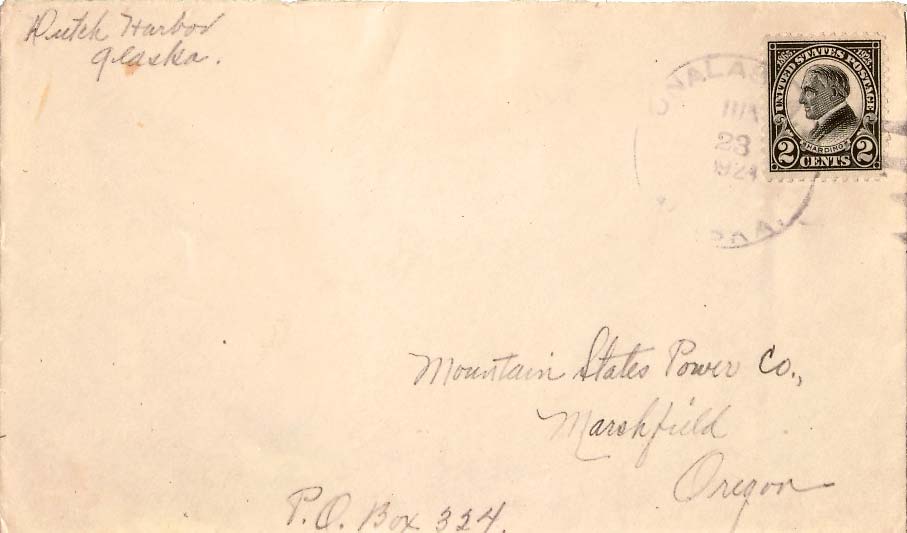 Dutch Harbor
Alaska.
UNALAS
JUN
23
1924
1865 UNITED STATES POSTAGE 1923
HARDING
2 CENTS 2
Mountain States Power Co.,
Marshfield
Oregon
P.O. Box 324.